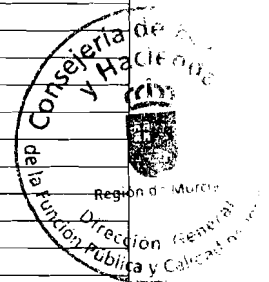 Consejería de
y Hacienda
Región de Murcia
Dirección General
de la Función Pública y Calidad